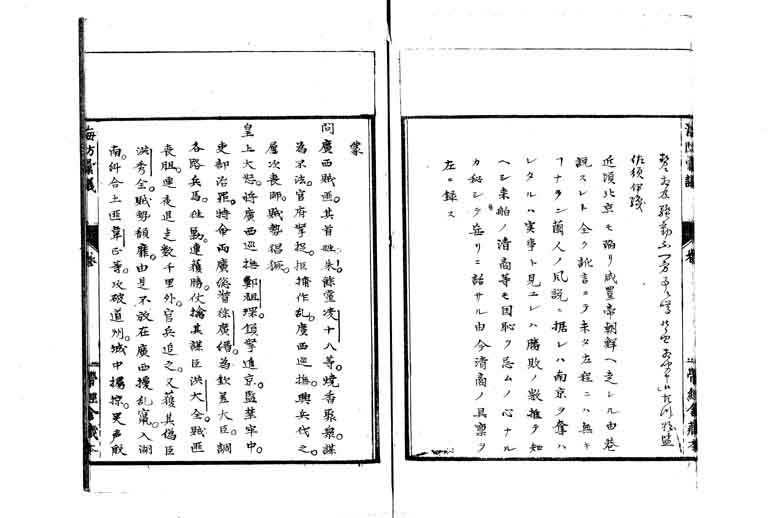 佐須伊織
近頃北京モ陥リ咸豊帝朝鮮ヘ走シル由巷
説スレト全ク訛言ニテ未タ左程ニハ無キ
「ナラン蘭人ノ風説ニ据レハ南京ヲ奪ハ
レタルハ実事ト見エレハ勝敗ノ数推テ知
ヘシ来舶ノ清商等モ国恥ク忌ムノ心ナル
カ秘シテ妄リニ話サル由今清商ノ具禀ヲ
左ニ録ス
海防彙議
巻
営經舎蔵本
蒙
問廣西賊匪其首姓朱餘黨凌十八等。焼香聚衆謀
為不法。官府拏捉。拒捕作乱。廣西巡撫興兵伐之。
屡次喪師。賊勢猖獗。
皇上大怒。將廣西巡撫鄭祖琛鎖拏進京。監禁牢中。
吏部治罪。特命両廣總督徐廣縉為欽差大臣。調
各路兵馬。征勦連獲勝仗。擒其謀臣洪大全。賊匪
喪胆。連夜退走数千里外。官兵追之。又獲其偽臣
洪秀全。賊勢頽靡。由是不敢在廣西擾乱。竄入湖
南。糾合土匪韋正等。攻破道州。城中擄掠。哭声献
海防彙議
巻
営經舎蔵本